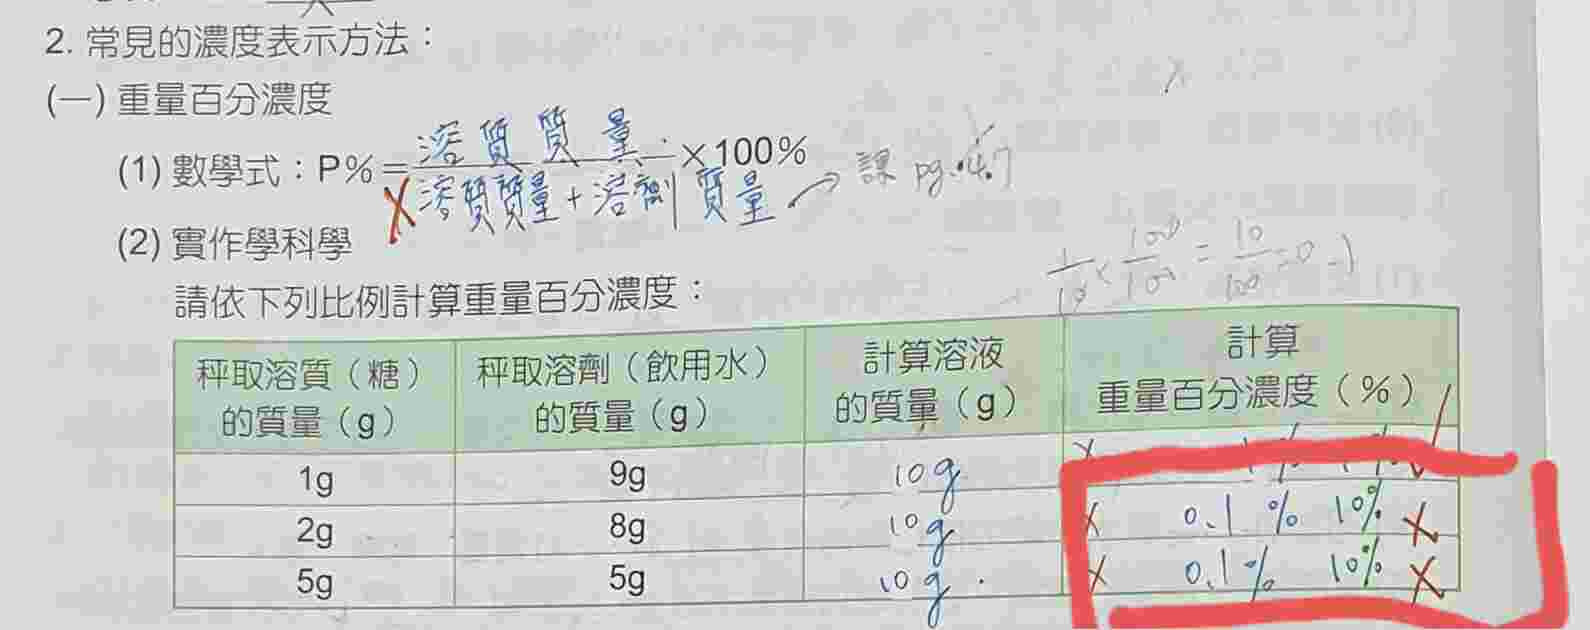 2. 常見的濃度表示方法：
(一) 重量百分濃度
(1) 數學式：P%=溶質質量/溶質質量+溶劑質量 ×100% → 課 pg.47
(2) 實作學科學
1/10 × 100/100 = 10/100 = 0.1
請依下列比例計算重量百分濃度：
秤取溶質（糖）的質量（g） 秤取溶劑（飲用水）的質量（g） 計算溶液的質量（g） 計算重量百分濃度（%）
1g 9g 10g
2g 8g 10g 0.1% 10%
5g 5g 10g 0.1% 10%